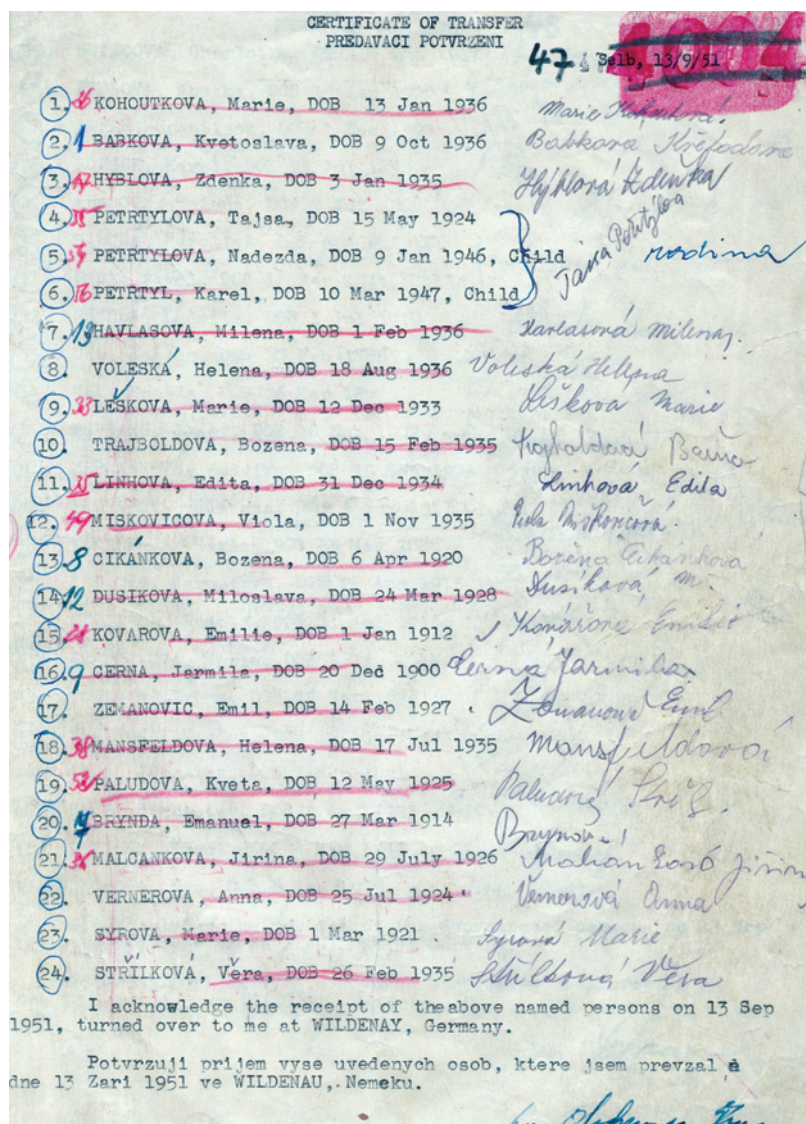 CERTIFICATE OF TRANSFER
PREDAVACI POTVRZENI
47 Selb, 13/9/51
1. KOHOUTKOVA, Marie, DOB 13 Jan 1936 Marie
2. 1 BABKOVA, Kvetoslava, DOB 9 Oct 1936 Babkova
3. HYBLOVA, Zdenka, DOB 3 Jan 1935 Hýblová Zdeňka
4. PETRTYLOVA, Tajsa, DOB 15 May 1924
5. PETRTYLOVA, Nadezda, DOB 9 Jan 1946, Child rodina
6. PETRTYL, Karel, DOB 10 Mar 1947, Child
7. 13 HAVLASOVA, Milena, DOB 1 Feb 1936 Havlasová Milena
8. VOLESKÁ, Helena, DOB 18 Aug 1936 Voleská Helena
9. 33 LEŠKOVA, Marie, DOB 12 Dec 1933 Marie
10. TRAJBOLDOVA, Bozena, DOB 15 Feb 1935
11. 35 LINHOVA, Edita, DOB 31 Dec 1934 Linhová Edita
12. 49 MISKOVICOVA, Viola, DOB 1 Nov 1935
13. 8 CIKÁNKOVA, Bozena, DOB 6 Apr 1920 Božena Cikánková
14. 12 DUSIKOVA, Miloslava, DOB 24 Mar 1928 Dusíková M.
15. KOVAROVA, Emilie, DOB 1 Jan 1912 Kovářová Emilie
16. 9 CERNA, Jarmila, DOB 20 Dec 1900 Černá Jarmila
17. ZEMANOVIC, Emil, DOB 14 Feb 1927 Emil
18. 38 MANSFELDOVA, Helena, DOB 17 Jul 1935 Mansfeldová
19. PALUDOVA, Kveta, DOB 12 May 1925
20. BRYNDA, Emanuel, DOB 27 Mar 1914
21. MALCANKOVA, Jirina, DOB 29 July 1926
22. VERNEROVA, Anna, DOB 25 Jul 1924 Vernerová Anna
23. SYROVA, Marie, DOB 1 Mar 1921 Syrová Marie
24. STŘÍLKOVÁ, Věra, DOB 26 Feb 1935 Střílková Věra
I acknowledge the receipt of theabove named persons on 13 Sep
1951, turned over to me at WILDENAY, Germany.
Potvrzuji prijem vyse uvedenych osob, ktere jsem prevzal
dne 13 Zari 1951 ve WILDENAU, Nemeku.